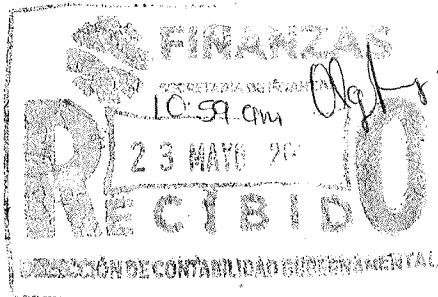 FINANZAS
SECRETARÍA DE FINANZAS
10:59 am
23 MAYO 20
RECIBIDO
DIRECCIÓN DE CONTABILIDAD GUBERNAMENTAL